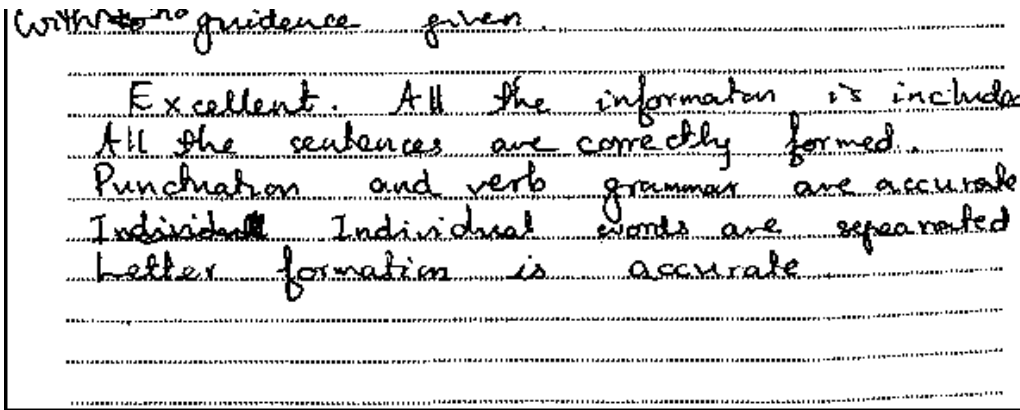 with no guidence given.
Excellent. All the informaton is include
All the sentences are correctly formed.
Punctuation and verb grammar are accurate
Individual Individual words are sepearated
Letter formation is accurate